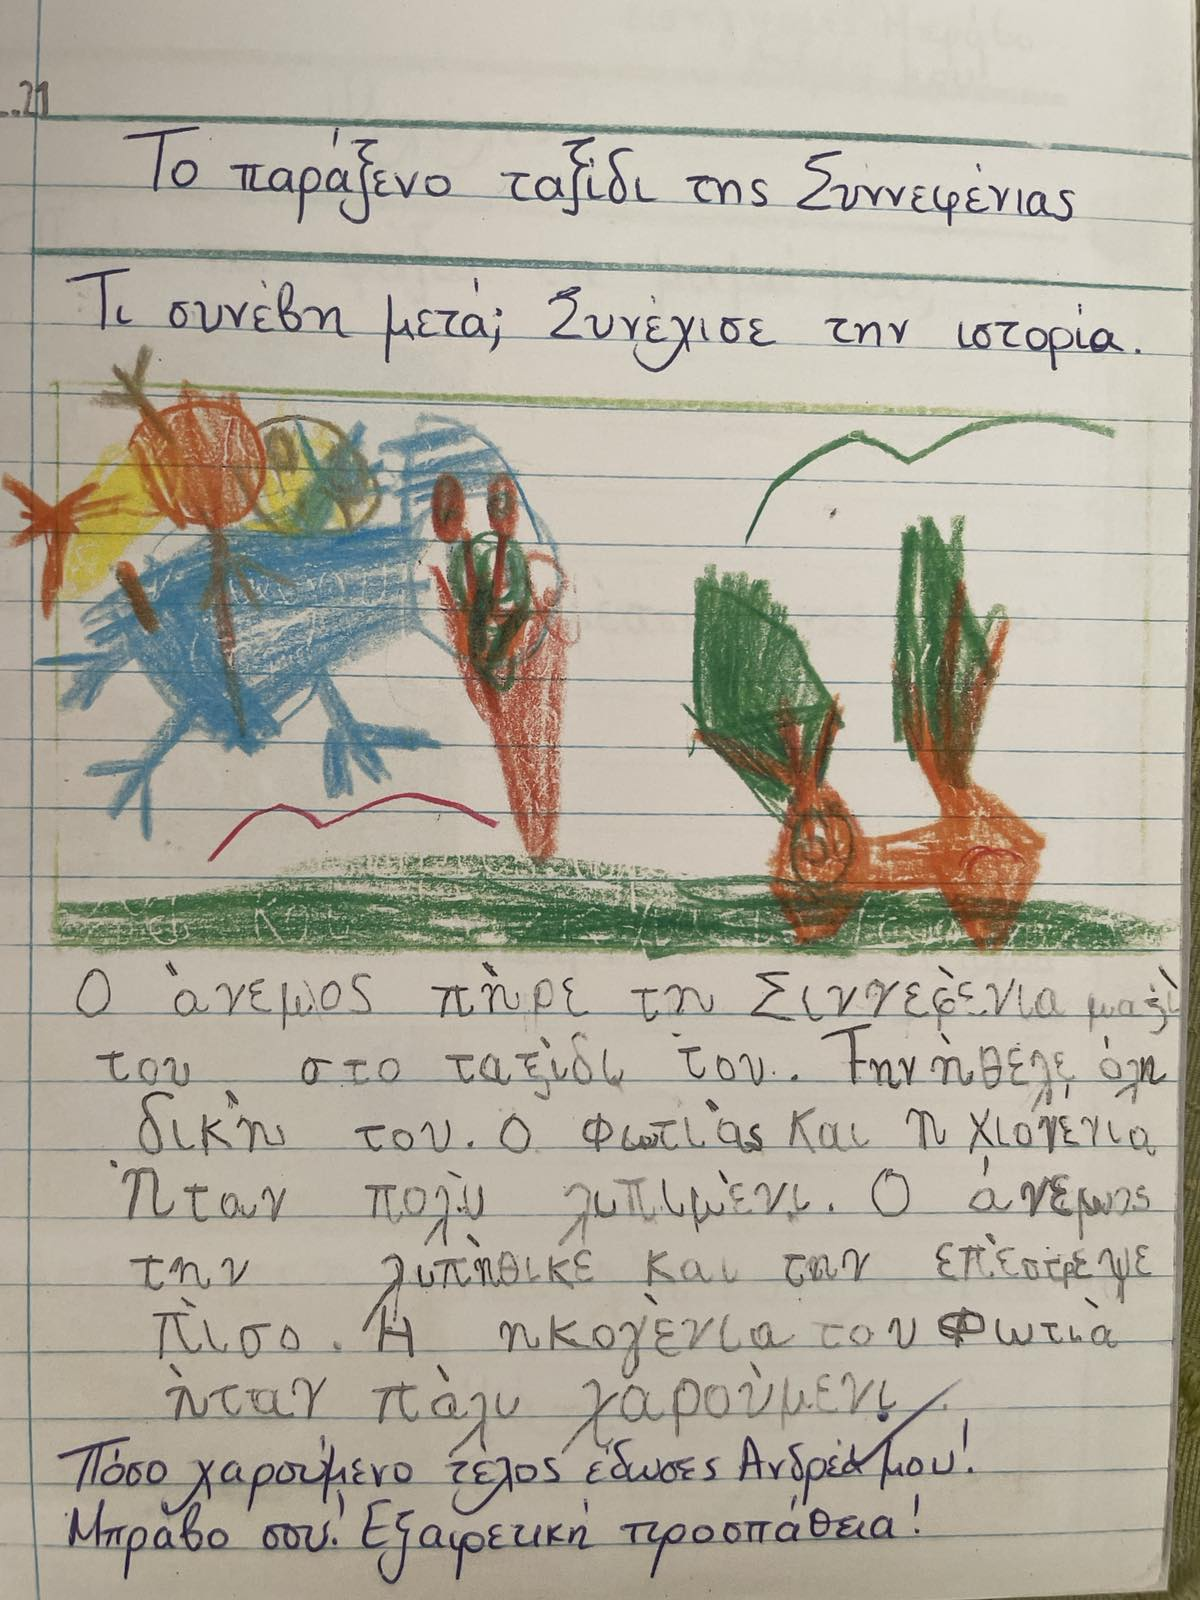 ..21
Το παράξενο ταξίδι της Συννεφένιας
Τι συνέβη μετά; Συνέχισε την ιστορία.
Ο άνεμος πήρε τη Σιννεφένια μαζί
του στο ταξίδι του. Την ήθελε όλη
δική του. Ο Φωτιάς και η χιονένια
Ήταν πολύ λυπιμένι. Ο άνεμως
την λυπήθικε και την επέστρεψε
πίσο. Η ηκογένια του Φωτιά
ήταν πάλι χαρούμενι.
Πόσο χαρούμενο τέλος έδωσες Ανδρέα μου!
Μπράβο σου! Εξαιρετική προσπάθεια!